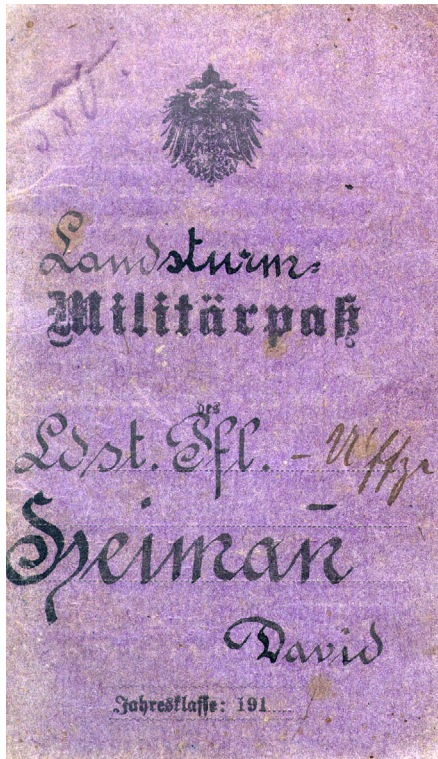 Landsturm-
Militärpaß
des
Ldst. Pfl. - Uffz
Heimañ
David
Jahresklasse: 191